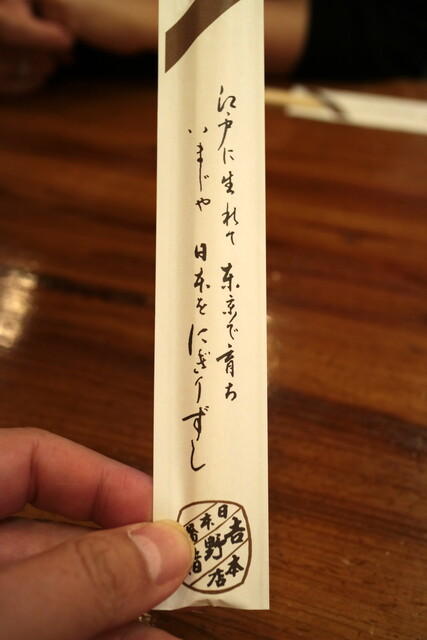 江戸に生れて 東京で育ち
いまじや 日本をにぎりずし
日本
吉野
本店